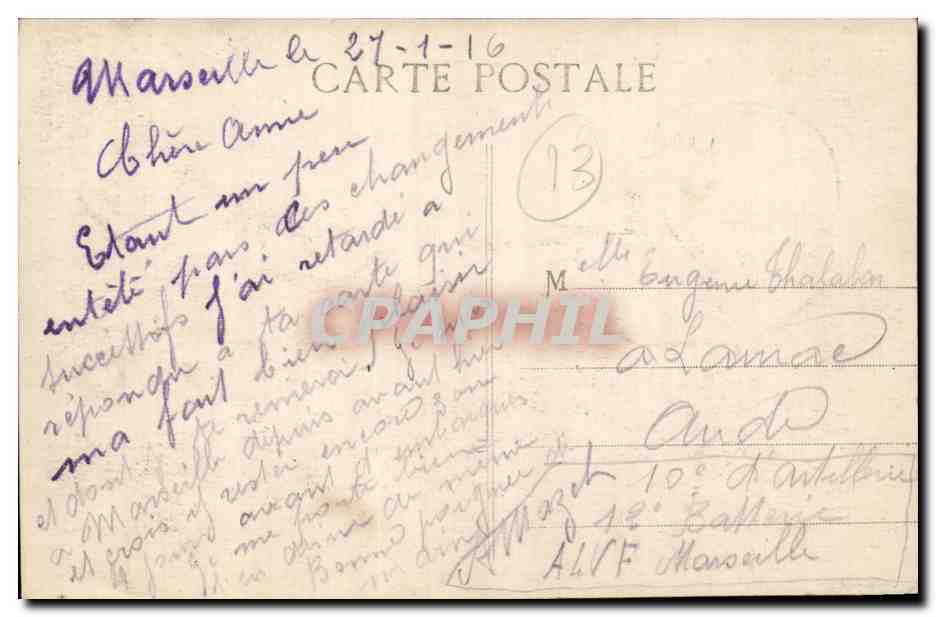 Marseille le 27-1-16
CARTE POSTALE
Chère Amie
Etant un peu
entêté par des changements
successifs j'ai retardé a
répondre a ta carte qui
ma fait bien plaisir
et dont je te remerci. Je suis
a Marseille depuis avant hier
et crois y rester encore 3 ou
4 jours avant d'embarquer.
Je me porte bien
de même
Bonne poignée de
main
A Mazet
13
M elle Eugénie
a Lanac
Aude
10e d'artillerie
18e Batterie
ALVF Marseille
CPAPHIL